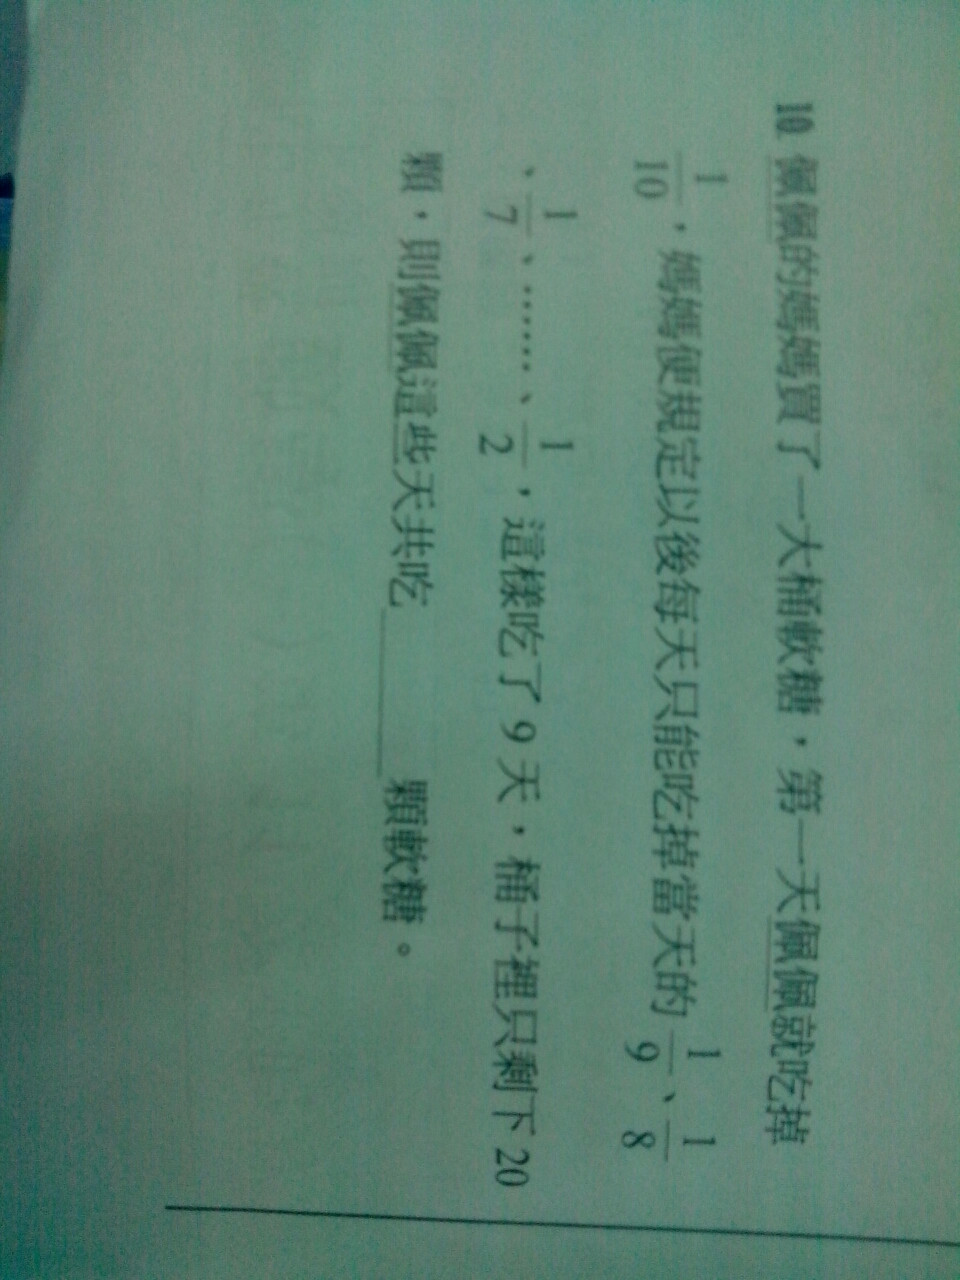 10. 佩佩的媽媽買了一大桶軟糖，第一天佩佩就吃掉
1/10，媽媽便規定以後每天只能吃掉當天的 1/9、1/8
、1/7、……、1/2，這樣吃了 9 天，桶子裡只剩下 20
顆，則佩佩這些天共吃______顆軟糖。